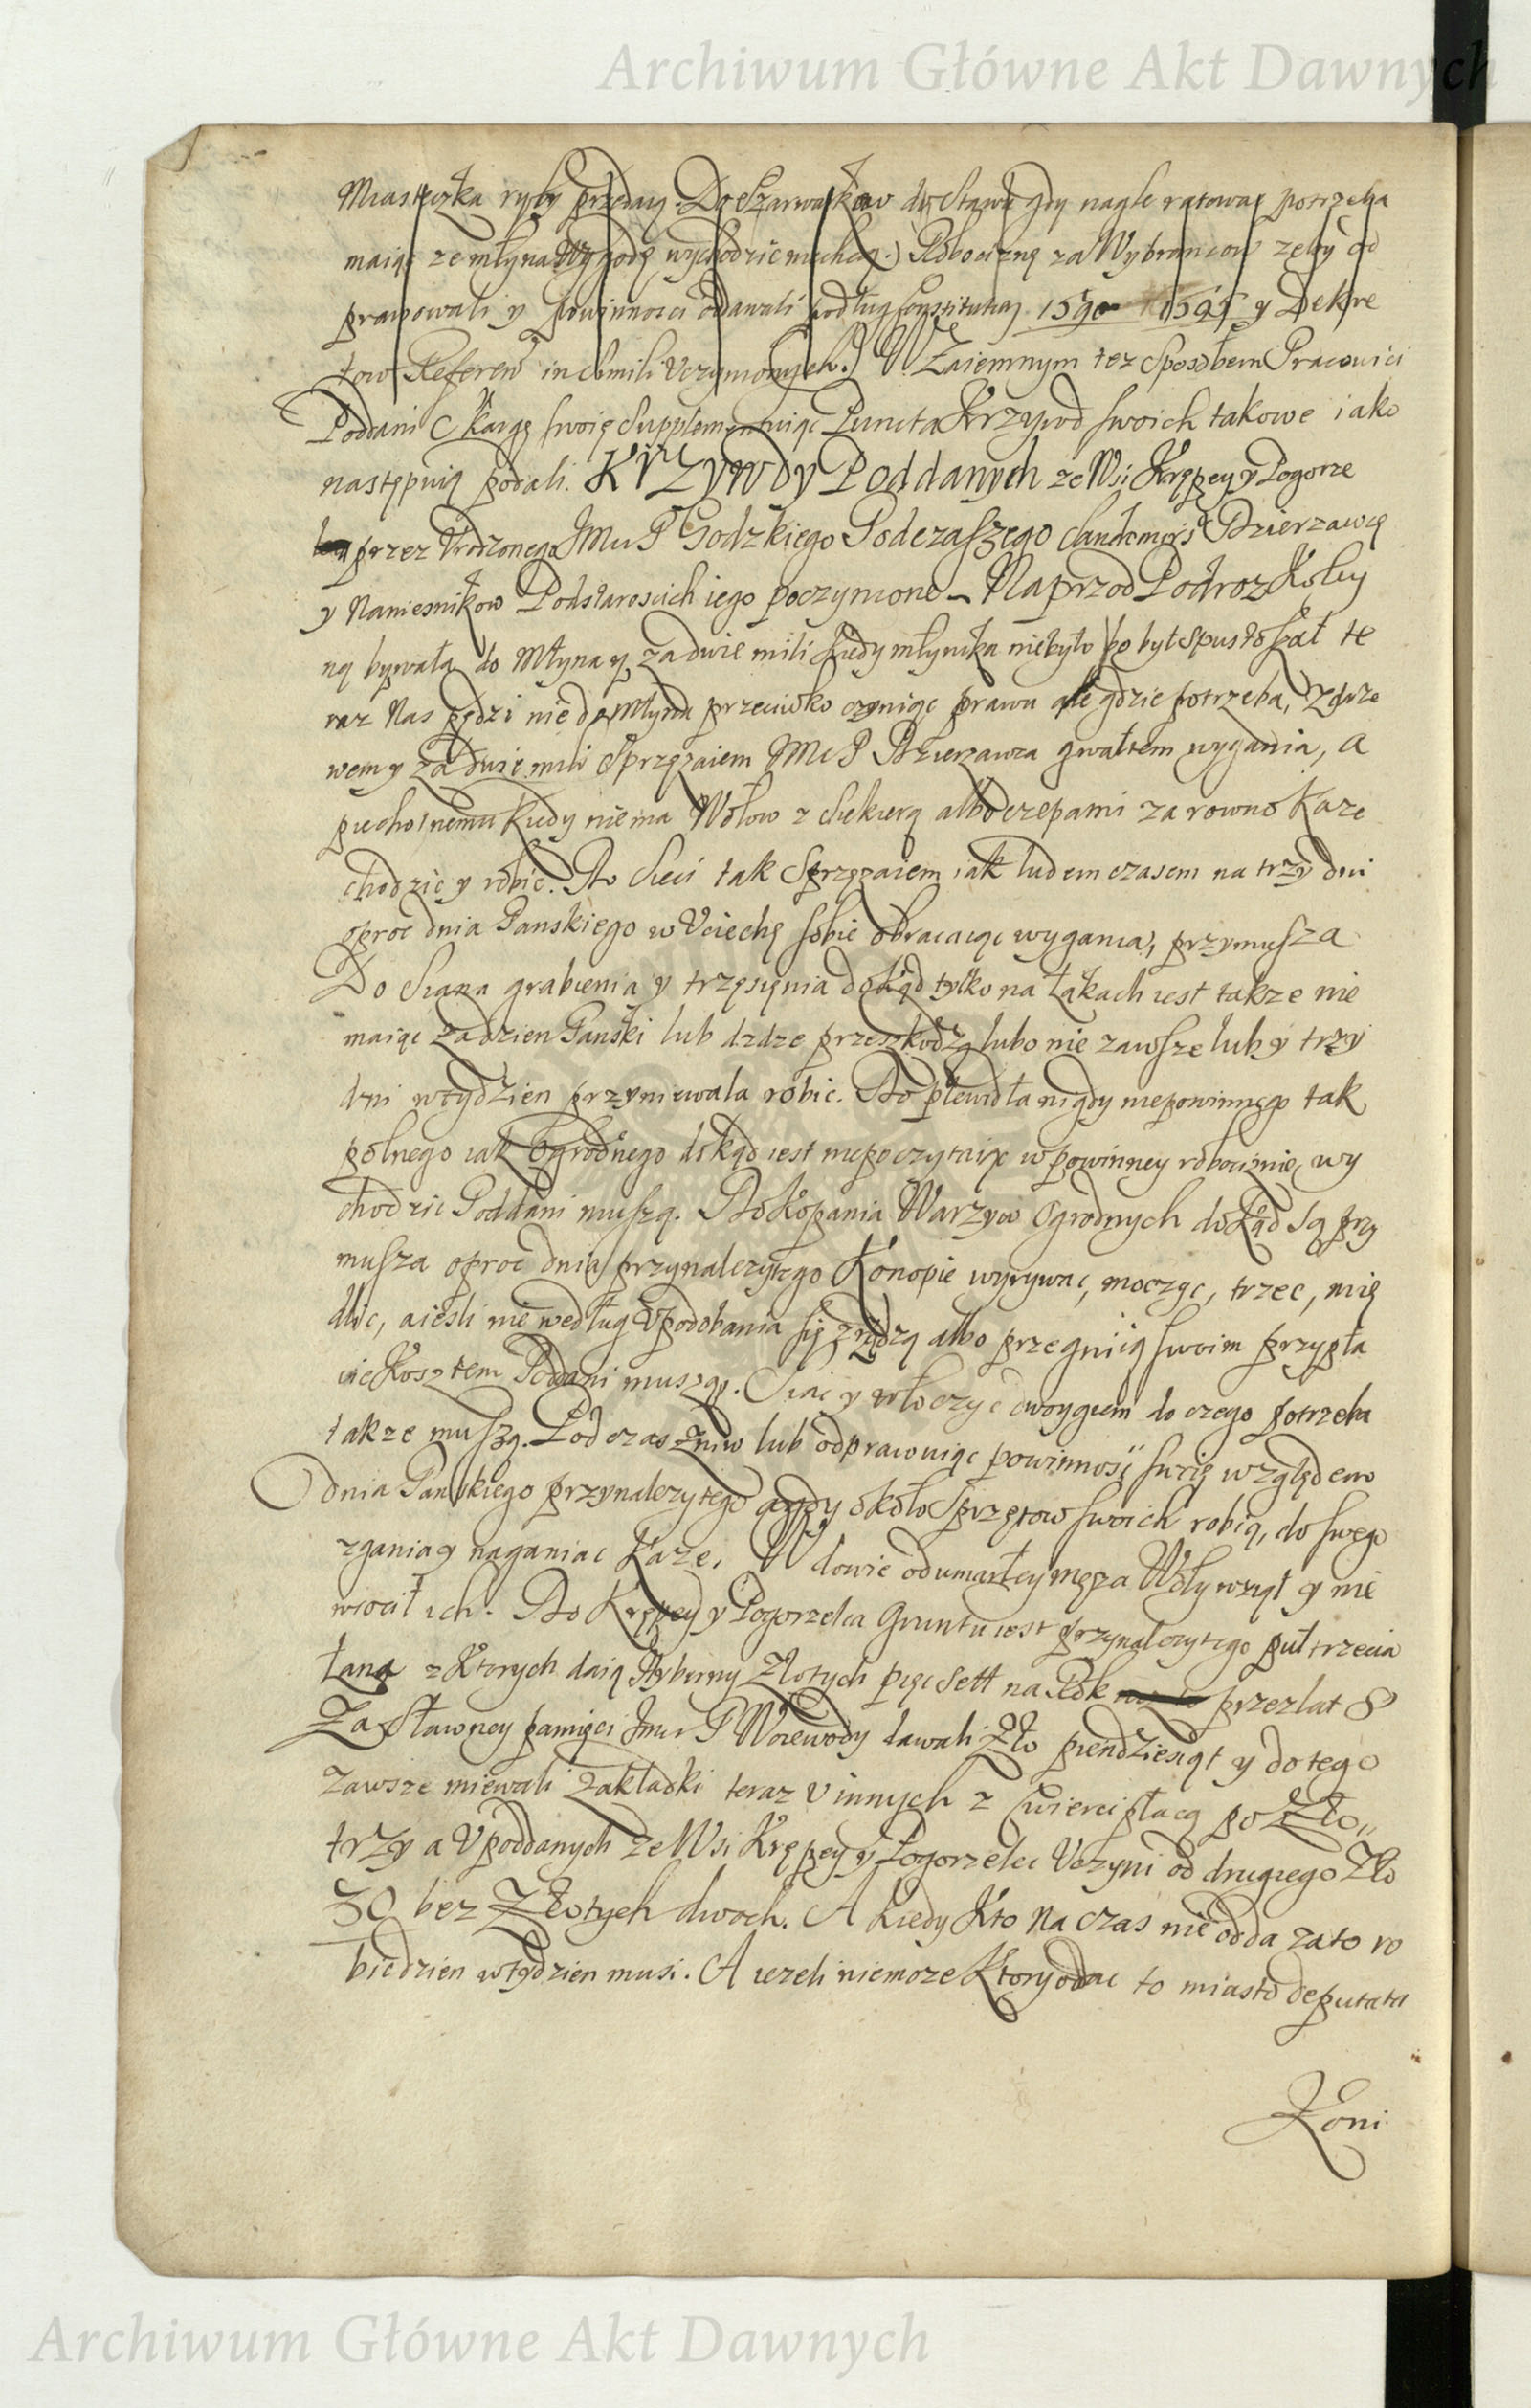 Archiwum Główne Akt Dawnych
Miasteczka ryby przedaią. Do Szarwarkow do Stawu gdy nagle ratować potrzeba
maiąc ze młyna wygodę wychodzic niechcą.) Robociznę za Wybrancow zeby od
prawowali y powinnosci oddawali podług Constitucyi 1590 1595 y Dekre
tow Referen in Comili Uczynionych.) Wzaiemnym tez Sposobem Pracowici
Poddani Skargę swoię Supplementuiąc Puncta Krzywd swoich takowe iako
następuią podali. Krzywdy Poddanych ze Wsi Krępey y Pogorze
przez Urodzonego Jmci P Godzkiego Podczaszego Sandomirs Dzierzawcę
y Namiesnikow Podstaroscich iego poczynione – Naprzod Podroz Koley
ną bywała do Młyna y za dwie mili kiedy młynika niebyło bo był Spustoszał te
raz Nas pędzi nie do Młyna przeciwko czyniąc prawu ale gdzie potrzeba, z drze
wem y za dwie mili Sprzęzaiem Jmci P Dzierzawca gwałtem wygania, a
piechotnemu kiedy niema Wołow z Siekierą albo czepami za rowno Kaze
chodzic y robic. Do Sieci tak Sprzęzaiem iak ludem czasem na trzy dni
oproc dnia Panskiego w Uciechę sobie obracaiąc wygania, przymusza
Do Siana grabienia y trzęsięnia dokąd tylko na Łąkach iest takze nie
maiąc za dzien Panski lub dzdze przeszkodzą lubo nie zawsze lub y trzy
dni w tydzien przyniewala robic. Do plewidła nigdy niepowinnego tak
polnego iak Ogrodnego dokąd iest niepoczytaiąc w powinney robociznie wy
chodzic Poddani muszą. Do Kopania Warzyw Ogrodnych dokąd są przy
musza oproc dnia przynalezytego Konopie wyrywac, moczyc, trzec, mię
dlic, a iesli nie według Upodobania się zrędzą albo przegniią swoim przypła
cic Kosztem Poddani muszą. Siac y włoczyc dwoygiem do czego potrzeba
takze muszą. Pod czas zniw lub odprawuiąc powinnosc swoię względem
dnia Panskiego przynalezytego a gdy około Sprzętow swoich robią, do swego
zgania y naganiac Kaze. Wdowie od umarłey męza Woły wziął y nie
wrocił ich. Do Krępey y Pogorzelca Gruntu iest przynalezytego puł trzecia
Łana z Ktorych daią Hyberny Złotych pięc sett na Rok przez lat 8
Za Sławney pamięci Jmci P Woiewody dawali Zło piendziesiąt y do tego
zawsze miewali zakładki teraz U innych z Cwierci płacą po Zło„
trzy a U poddanych ze Wsi Krępey y Pogorzelca Uczyni od drugiego Zło
30 bez Złotych dwoch. A Kiedy Kto na czas nie odda za to ro
bic dzien w tydzien musi. A iezeli niemoze Ktory oddac to miasto deputata
Koni
Archiwum Główne Akt Dawnych